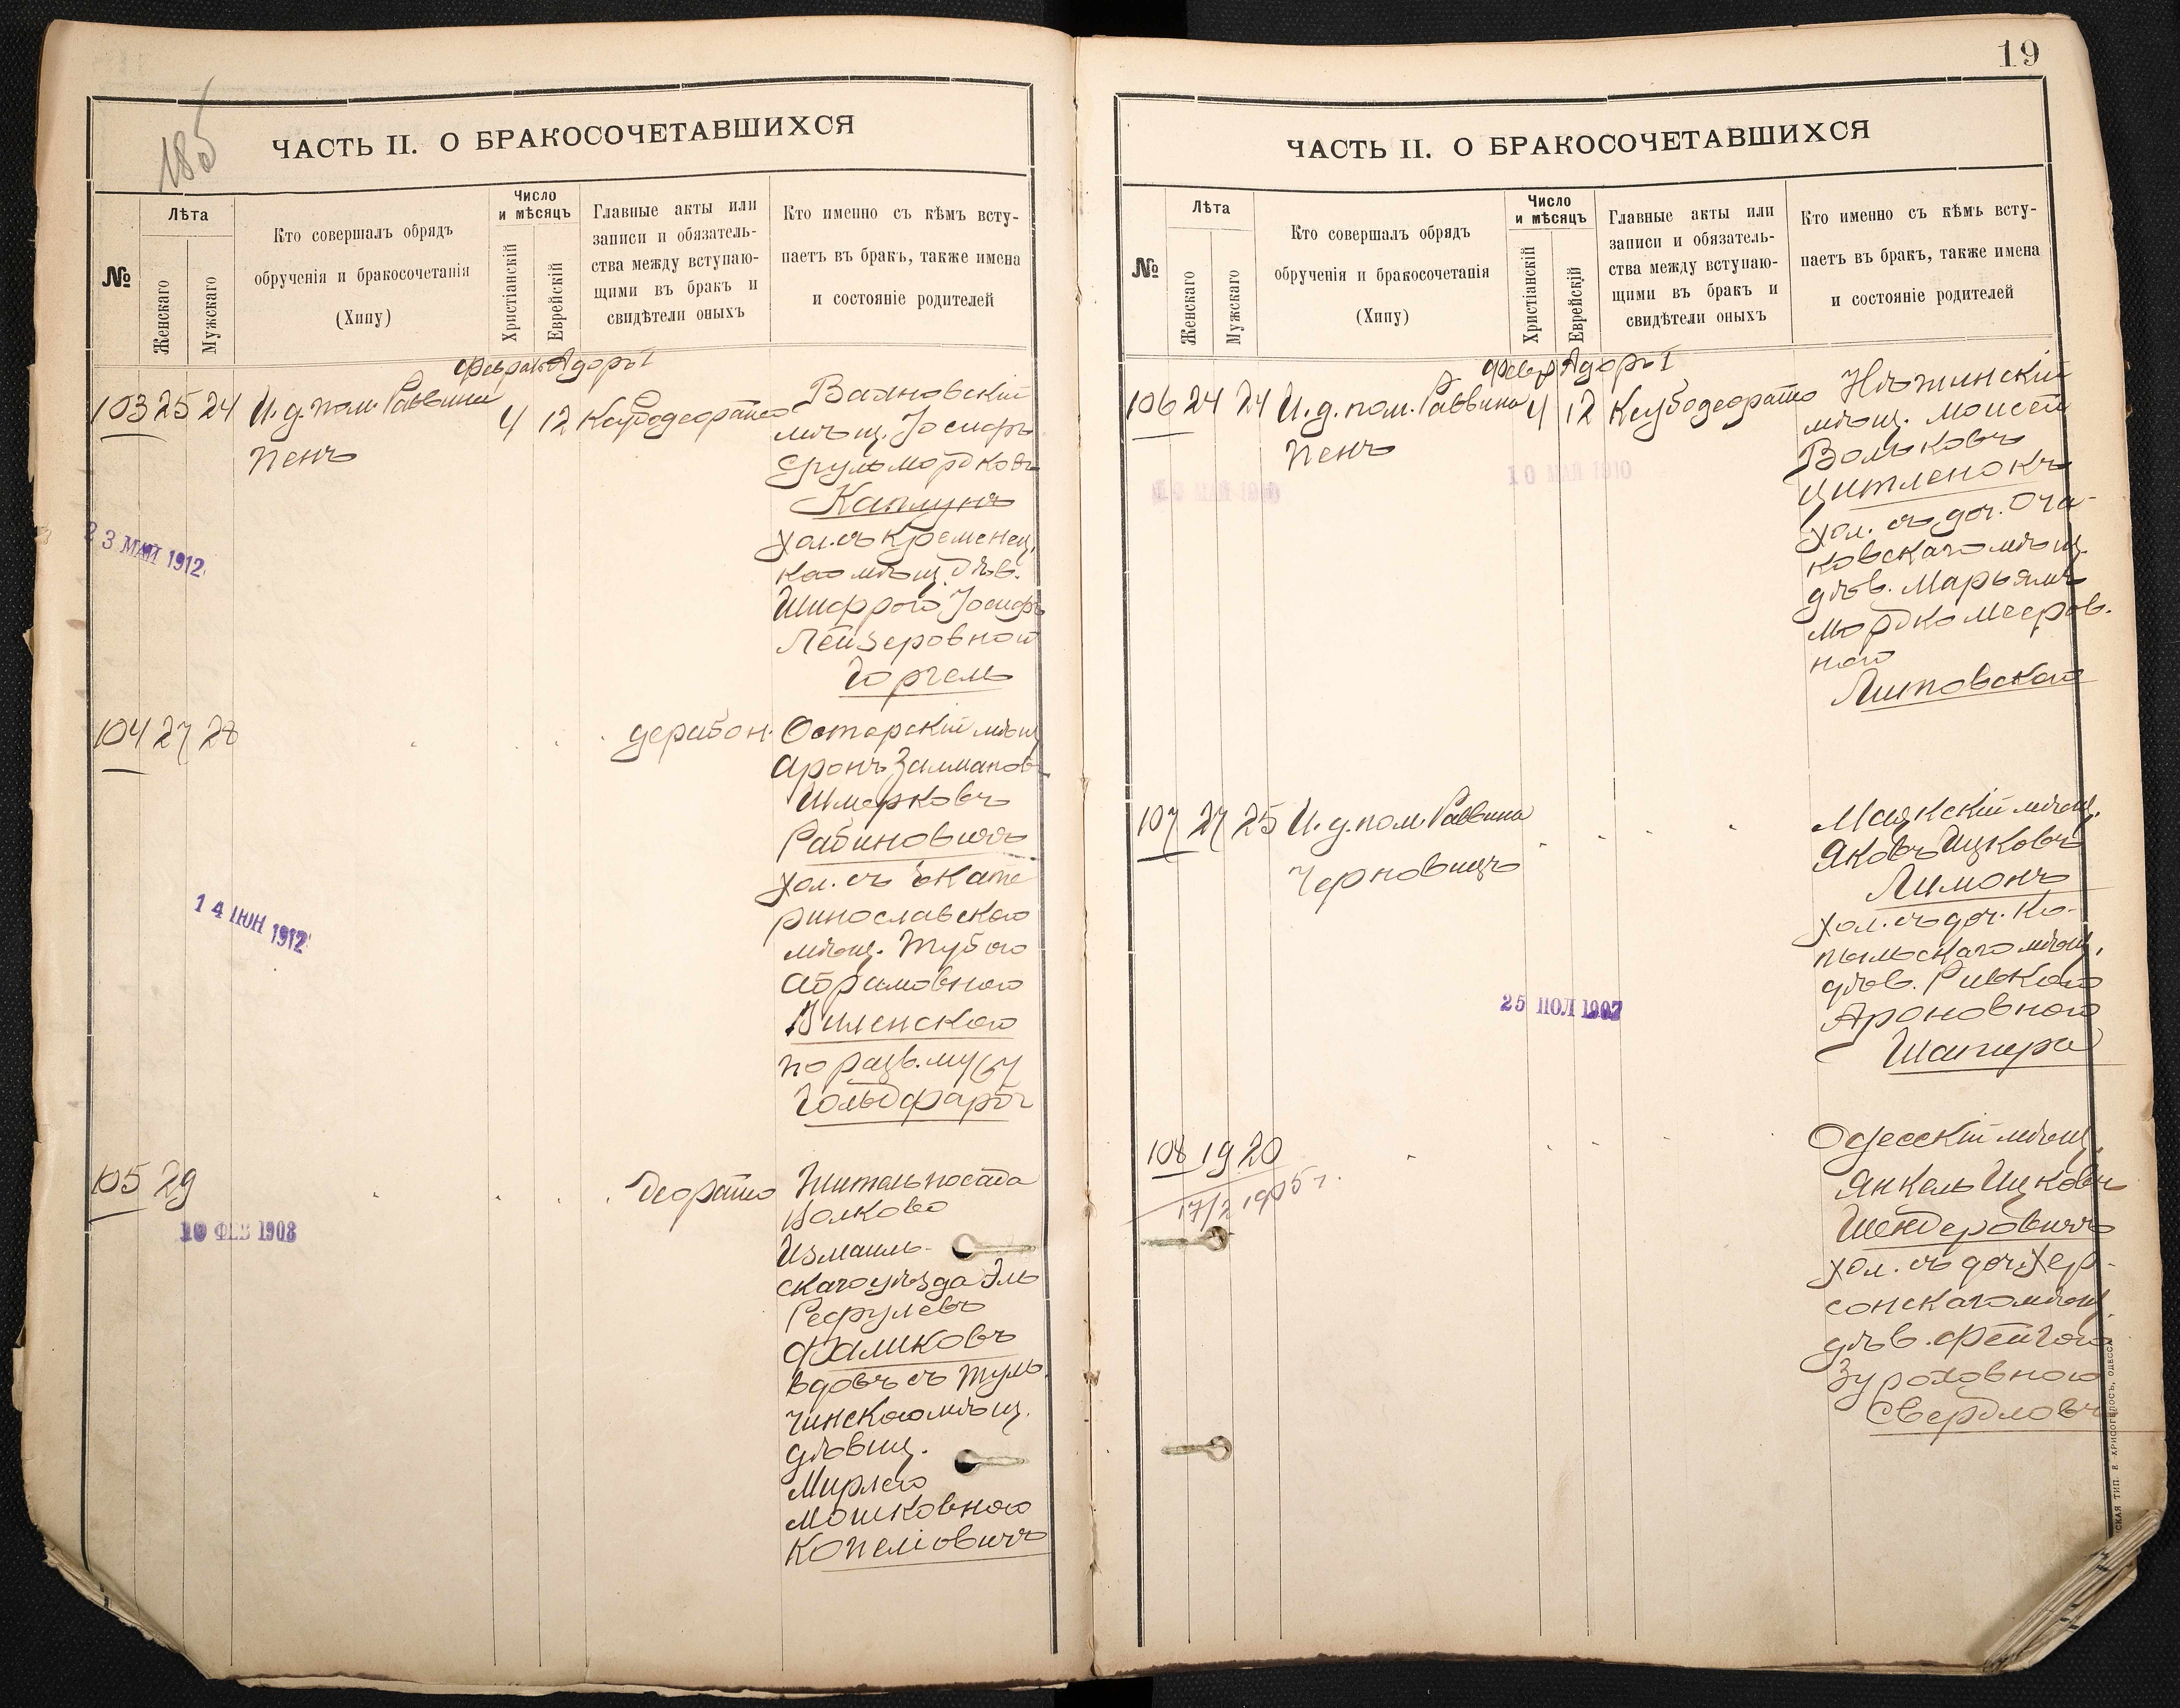 185
ЧАСТЬ II. О БРАКОСОЧЕТАВШИХСЯ
№
Лѣта
Женскаго
Мужскаго
Кто совершалъ обрядъ
обрученія и бракосочетанія
(Хипу)
Число
и мѣсяцъ
Христіанскій
Еврейскій
Главные акты или
записи и обязатель-
ства между вступаю-
щими въ бракъ и
свидѣтели оныхъ
Кто именно съ кѣмъ всту-
паетъ въ бракъ, также имена
и состояніе родителей
Февраль Адоръ I
103 25 24 И. д. пом. Раввина
Пенъ
4 12
мѣщ. Іосифъ
Сруль Мордковъ
Каплунъ
хол. съ Кременец.
кою мѣщ. дѣв.
Шифрою Іосифъ
Лейзеровной
Горгель
23 МАЙ 1912
104 27 28
Остерскій мѣщ.
Аронъ Залмановъ
Шмерковъ
Рабиновичъ
хол. съ Екате
ринославскою
мѣщ. Тубою
Абрамовною
Виленскою
по разв. мужу
Гольдфарбъ
14 ІЮН 1912
105 29
Житель посада
Волково
Измаиль-
скаго уѣзда Эль
Рефулевъ
Фаликовъ
вдовъ съ Туль
чинскою мѣщ.
дѣвиц.
Мирлею
Мошковною
Копеліовичъ
10 ФЕВ 1908
19
ЧАСТЬ II. О БРАКОСОЧЕТАВШИХСЯ
№
Лѣта
Женскаго
Мужскаго
Кто совершалъ обрядъ
обрученія и бракосочетанія
(Хипу)
Число
и мѣсяцъ
Христіанскій
Еврейскій
Главные акты или
записи и обязатель-
ства между вступаю-
щими въ бракъ и
свидѣтели оныхъ
Кто именно съ кѣмъ всту-
паетъ въ бракъ, также имена
и состояніе родителей
Февр Адоръ I
106 24 24 И. д. пом. Раввина
Пенъ
4 12
Нѣжинскій
мѣщ. Моисей
Вольковъ
Цитленокъ
хол. съ доч. Оча-
ковскаго мѣщ.
дѣв. Марьямъ
Мордко Мееров.
ною
Литовскою
10 МАЙ 1910
10 МАЙ 1910
107 27 25 И. д. пом. Раввина
Черновицъ
Маякскій мѣщ.
Яковъ Ицковъ
Лимонъ
хол. съ доч. Ко-
пыльскаго мѣщ.
дѣв. Ривкою
Ароновною
Шапиро
108 19 20
17/2 1905 г.
Одесскій мѣщ.
Янкель Ицковъ
Шендеровичъ
хол. съ доч. Хер-
сонскаго мѣщ.
дѣв. Фейгою
Зуроховною
Свердловъ
ТИП. Е. ХРИСОГЕЛОСЪ, ОДЕССА